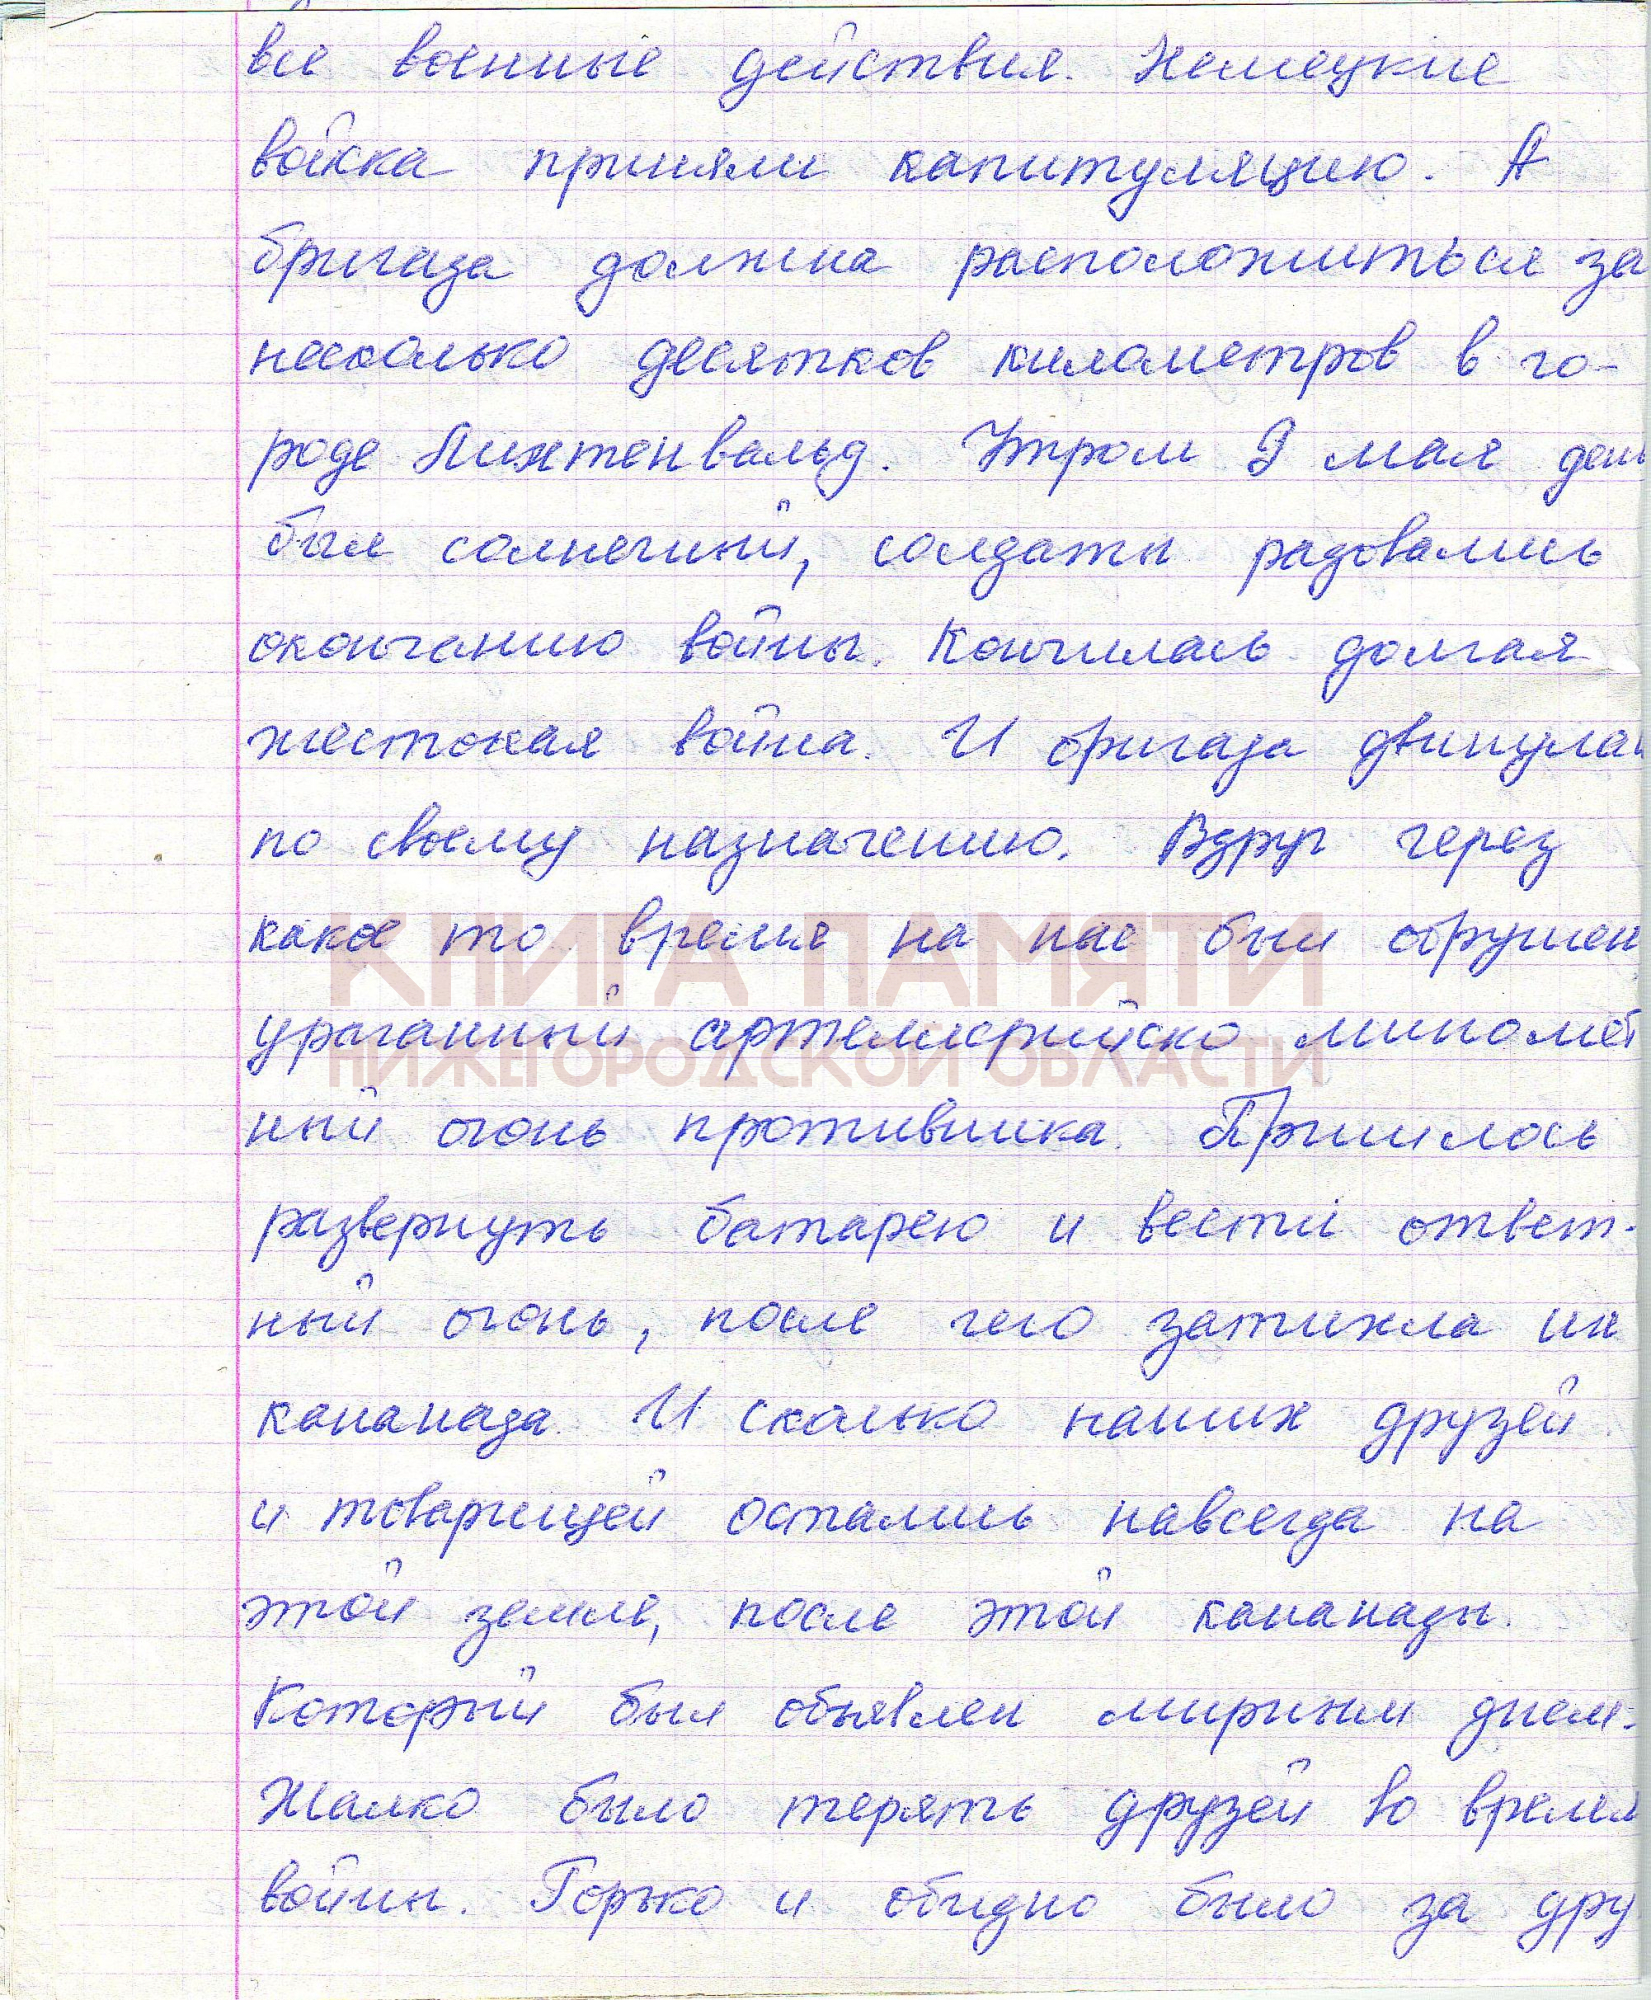 все военные действия. Немецкие
войска приняли капитуляцию. А
бригада должна расположиться за
несколько десятков километров в го-
роде Лихтенвальд. Утром 9 мая день
был солнечный, солдаты радовались
окончанию войны. Кончилась долгая
жестокая война. И бригада двинулась
по своему назначению. Вдруг через
какое то время на нас был обрушен
КНИГА ПАМЯТИ
ураганный артелерийско миномёт
НИЖЕГОРОДСКОЙ ОБЛАСТИ
ный огонь противника. Пришлось
развернуть батарею и вести ответ-
ный огонь, после чего затихла их
кананада. И сколько наших друзей
и товарищей остались навсегда на
этой земле, после этой кананады.
Который был объявлен мирным днем.
Жалко было терять друзей во время
войны. Горько и обидно было за дру